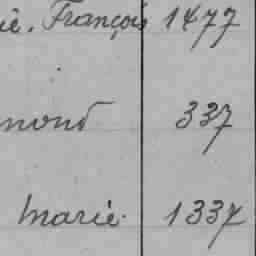 ie. François 1477
mond 337
Marie. 1337